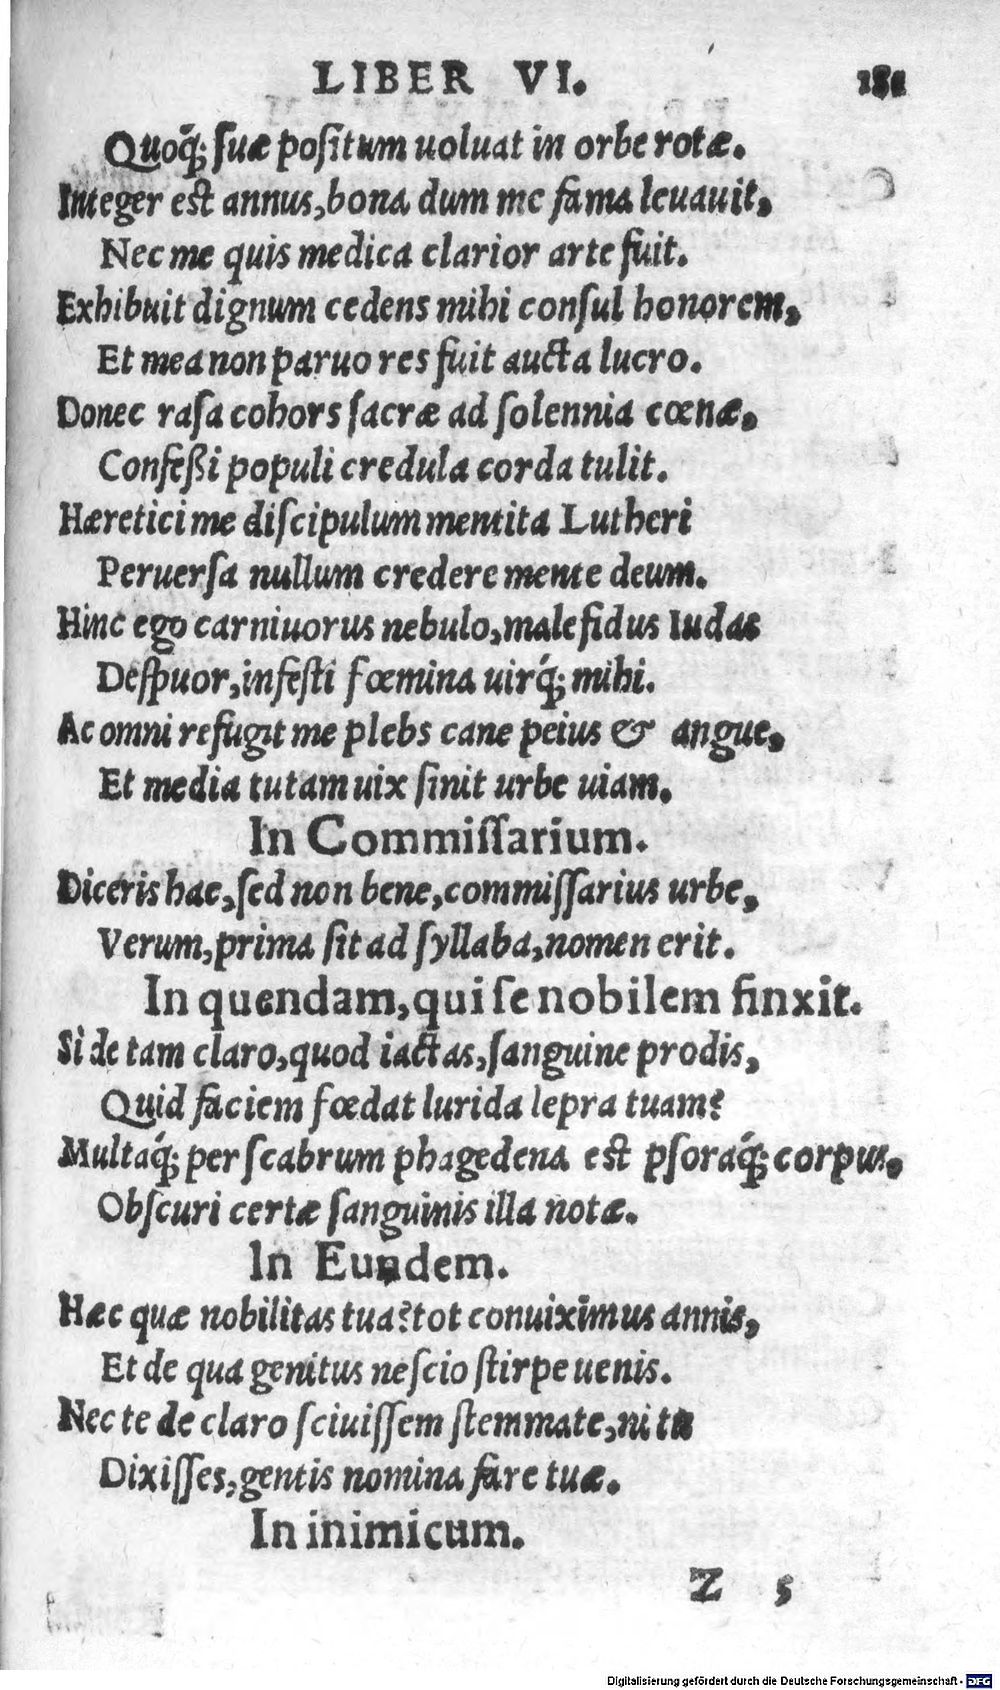 LIBER VI.
Quoq́; ſuæ poſitum uoluat in orbe rotæ.
Integer eſt annus, bona dum me fama leuauit,
Nec me quis medica clarior arte fuit.
Exhibuit dignum cedens mihi conſul honorem,
Et mea non paruo res fuit aucta lucro.
Donec raſa cohors ſacræ ad ſolennia cœnæ,
Confeßi populi credula corda tulit.
Hæretici me diſcipulum mentita Lutheri
Peruerſa nullum credere mente deum.
Hinc ego carniuorus nebulo, male fidus Iudas
Deſpuor, infeſti fœmina uirq́; mihi.
Ac omni refugit me plebs cane peius & angue,
Et media tutam uix ſinit urbe uiam.
In Commiſſarium.
Diceris hac, ſed non bene, commiſſarius urbe,
Verum, prima ſit ad ſyllaba, nomen erit.
In quendam, qui ſe nobilem finxit.
Si de tam claro, quod iactas, ſanguine prodis,
Quid faciem fœdat lurida lepra tuam?
Multaq́; per ſcabrum phagedena eſt pſoraq́; corpus,
Obſcuri certæ ſanguinis illa notæ.
In Eundem.
Hæc quæ nobilitas tua? tot conuiximus annis,
Et de qua genitus neſcio ſtirpe uenis.
Nec te de claro ſciuiſſem ſtemmate, ni tu
Dixiſſes, gentis nomina fare tuæ.
In inimicum.
Z 5
Digitalisierung gefördert durch die Deutsche Forschungsgemeinschaft - DFG